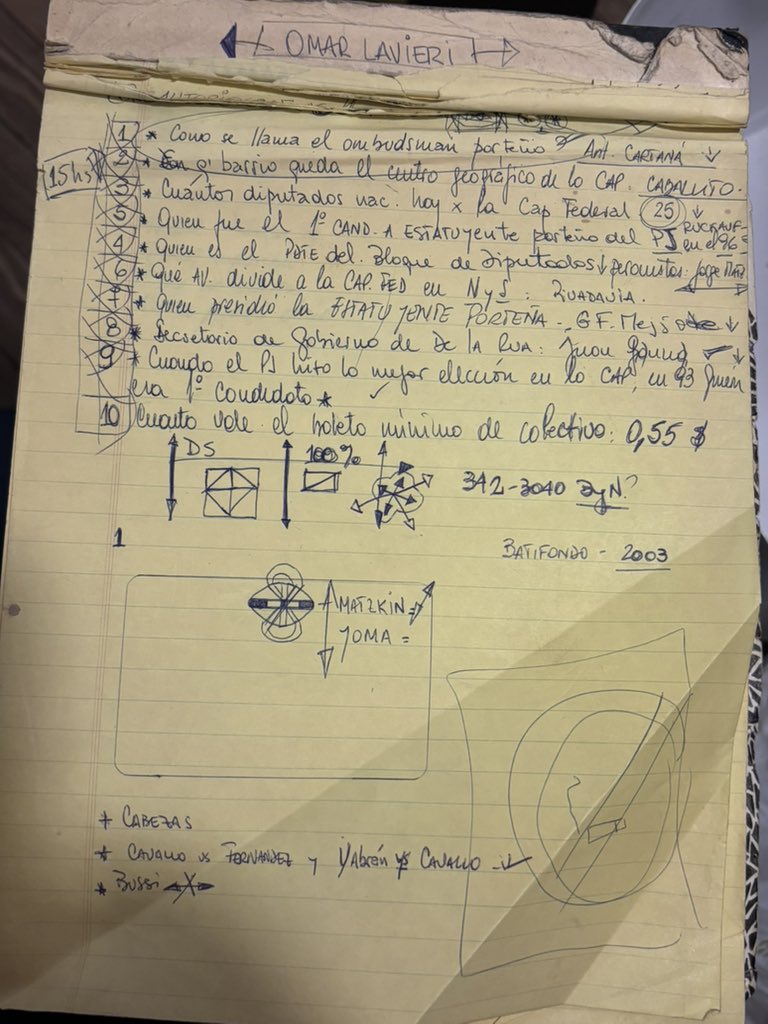 OMAR LAVIERI
1 * Como se llama el ombudsman porteño? Ant. CARTAÑÁ
15hs 2 * En q' barrio queda el centro geográfico de la CAP. CABALLITO.
3 * Cuántos diputados nac. hay x la Cap Federal 25
5 * Quien fue el 1º CAND. A ESTATUYENTE porteño del PJ RUCKAUF en el 96
4 * Quien es el PDTE del Bloque de Diputados peronistas: Jorge
6 * Qué AV. divide a la CAP. FED en N y S: RIVADAVIA.
7 * Quien presidió la ESTATUYENTE PORTEÑA - G.F. Meijide
8 * Secretario de Gobierno de De la RUA:
9 * Cuando el PJ hizo la mejor elección en la CAP, en 93 quién
era 1º candidato *
10 Cuanto vale el boleto mínimo de colectivo: 0,55 $
DS 100%
342-3040 DyN?
1
BATIFONDO - 2003
MATZKIN =
YOMA =
* CABEZAS
* CAVALLO vs FERNANDEZ y Yabrán vs CAVALLO
* BUSSI